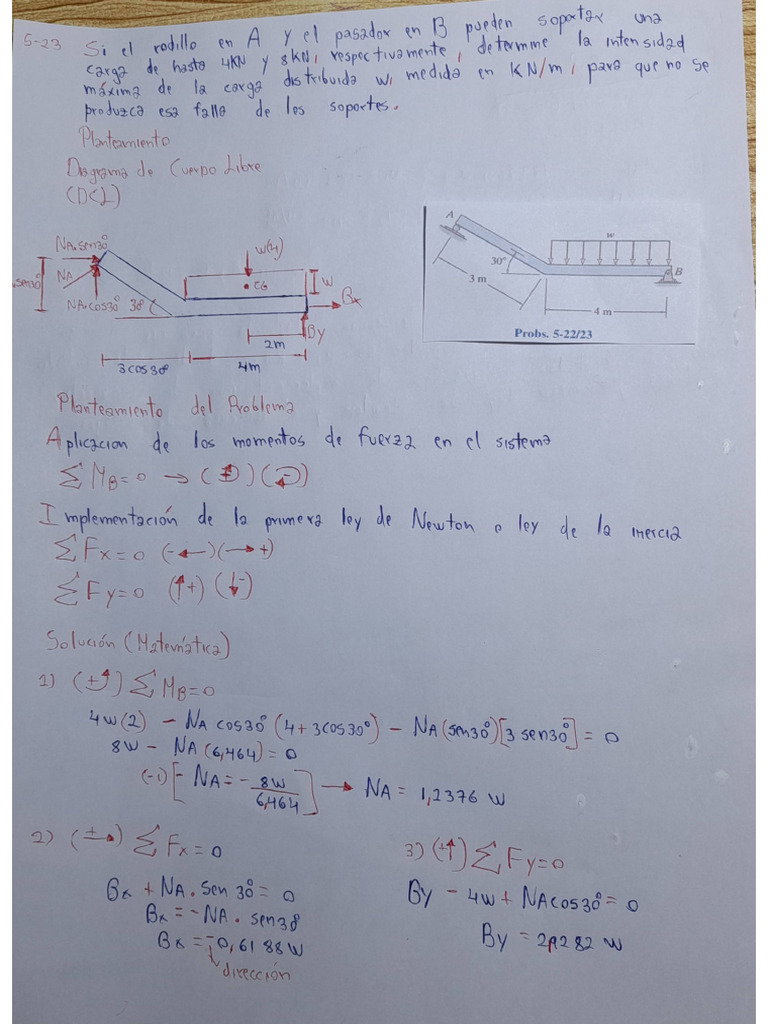 5-23 Si el rodillo en A y el pasador en B pueden soportar una
carga de hasta 4KN y 8KN, respectivamente, determine la intensidad
máxima de la carga distribuida w, medida en KN/m, para que no se
produzca esa falla de los soportes.
Planteamiento
Diagrama de Cuerpo Libre
(DCL)
NA.sen30°
NA
sen30°
NA.cos30° 30°
w(4)
CG
w
Bx
By
2m
3cos30° 4m
A
w
30°
B
3 m
4 m
Probs. 5-22/23
Planteamiento del Problema
Aplicacion de los momentos de fuerza en el sistema
ΣMB=0 → (+)(-)
Implementación de la primera ley de Newton o ley de la inercia
ΣFx=0 (-←)(→+)
ΣFy=0 (↑+)(↓-)
Solución (Matemática)
1) (+↺) ΣMB=0
4w(2) - NA cos30°(4+3cos30°) - NA(sen30°)[3 sen30°] = 0
8w - NA(6,464) = 0
(-1)[- NA = - 8w/6,464] → NA = 1,2376 w
2) (+→) ΣFx=0
Bx + NA.sen30° = 0
Bx = -NA.sen30
Bx = -0,6188w
dirección
3) (+↑) ΣFy=0
By - 4w + NAcos30° = 0
By = 2,9282 w